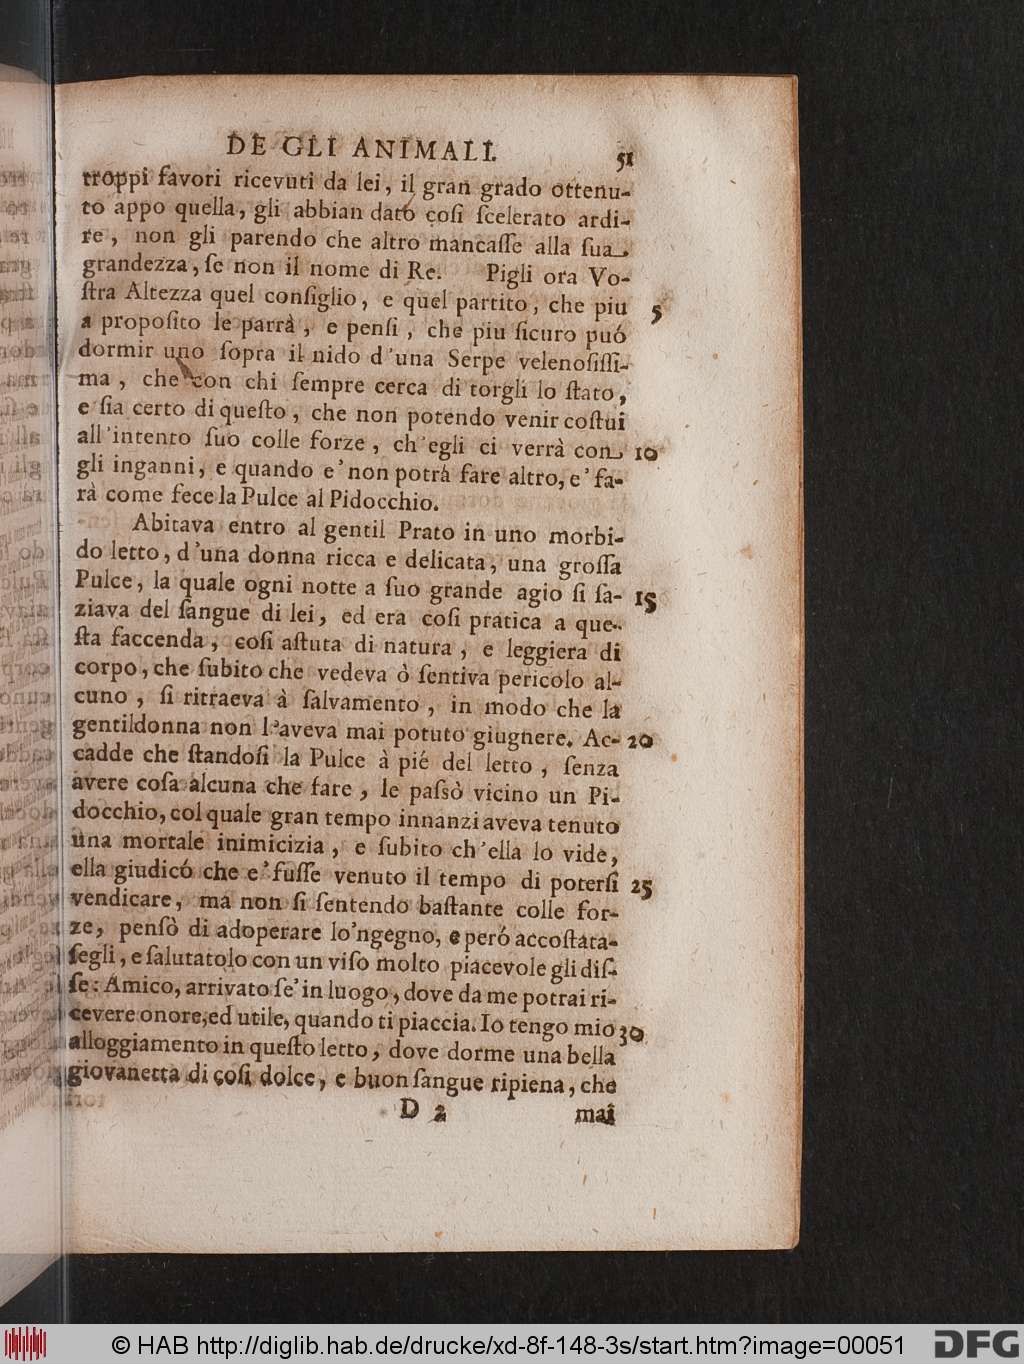 DE GLI ANIMALI. 51
troppi favori ricevuti da lei, il gran grado ottenu-
to appo quella, gli abbian dató coſi ſcelerato ardi-
re, non gli parendo che altro mancaſſe alla ſua
grandezza, ſe non il nome di Re. Pigli ora Vo-
ſtra Altezza quel conſiglio, e quel partito, che piu 5
a propoſito le parrà, e penſi, che piu ſicuro puó
dormir uno ſopra il nido d'una Serpe velenoſiſſi-
ma, che con chi ſempre cerca di torgli lo ſtato,
e ſia certo di queſto, che non potendo venir coſtui
all'intento ſuo colle forze, ch'egli ci verrà con 10
gli inganni, e quando e' non potrà fare altro, e' fa-
rà come fece la Pulce al Pidocchio.
Abitava entro al gentil Prato in uno morbi-
do letto, d'una donna ricca e delicata, una groſſa
Pulce, la quale ogni notte a ſuo grande agio ſi ſa- 15
ziava del ſangue di lei, ed era coſi pratica a que-
ſta faccenda, coſi aſtuta di natura, e leggiera di
corpo, che ſubito che vedeva ò ſentiva pericolo al-
cuno, ſi ritraeva à ſalvamento, in modo che la
gentildonna non l'aveva mai potuto giugnere. Ac- 20
cadde che ſtandoſi la Pulce à pié del letto, ſenza
avere coſa alcuna che fare, le paſsò vicino un Pi-
docchio, col quale gran tempo innanzi aveva tenuto
una mortale inimicizia, e ſubito ch'ella lo vide,
ella giudicó che e' fuſſe venuto il tempo di poterſi 25
vendicare, ma non ſi ſentendo baſtante colle for-
ze, penſò di adoperare lo'ngegno, e però accoſtata-
ſegli, e ſalutatolo con un viſo molto piacevole gli diſ-
ſe: Amico, arrivato ſe' in luogo, dove da me potrai ri-
cevere onore, ed utile, quando ti piaccia. Io tengo mio 30
alloggiamento in queſto letto, dove dorme una bella
giovanetta di coſi dolce, e buon ſangue ripiena, che
D 2 mai
© HAB http://diglib.hab.de/drucke/xd-8f-148-3s/start.htm?image=00051
DFG